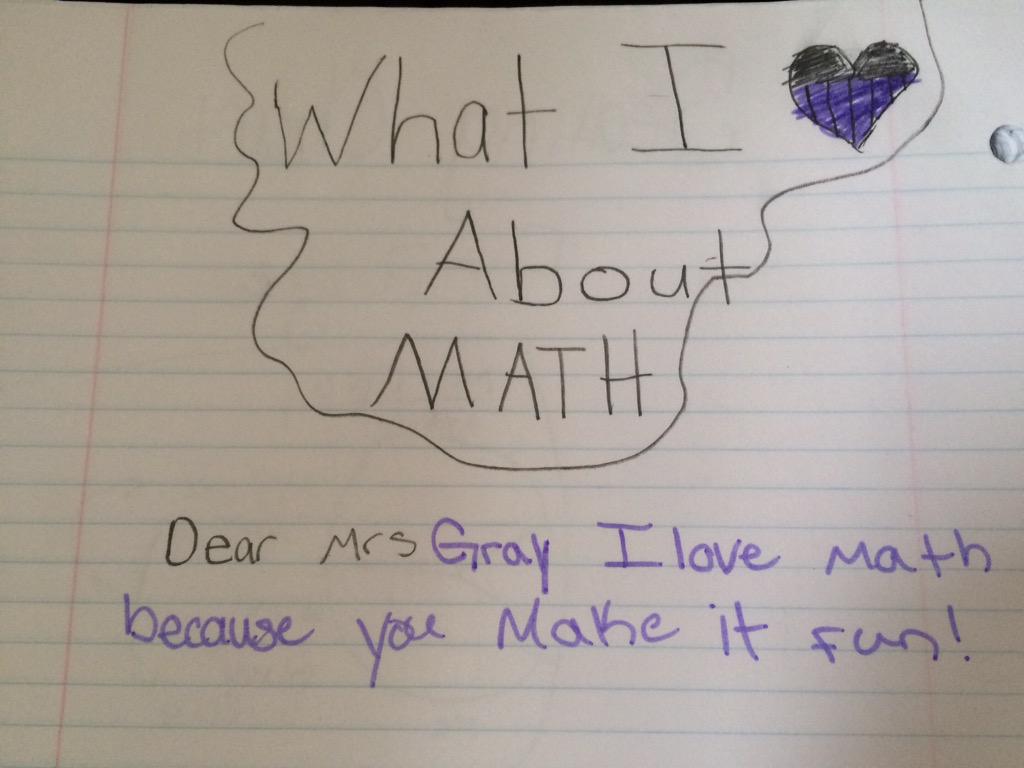 What I
About
MATH
Dear Mrs Gray I love math
because you make it fun!